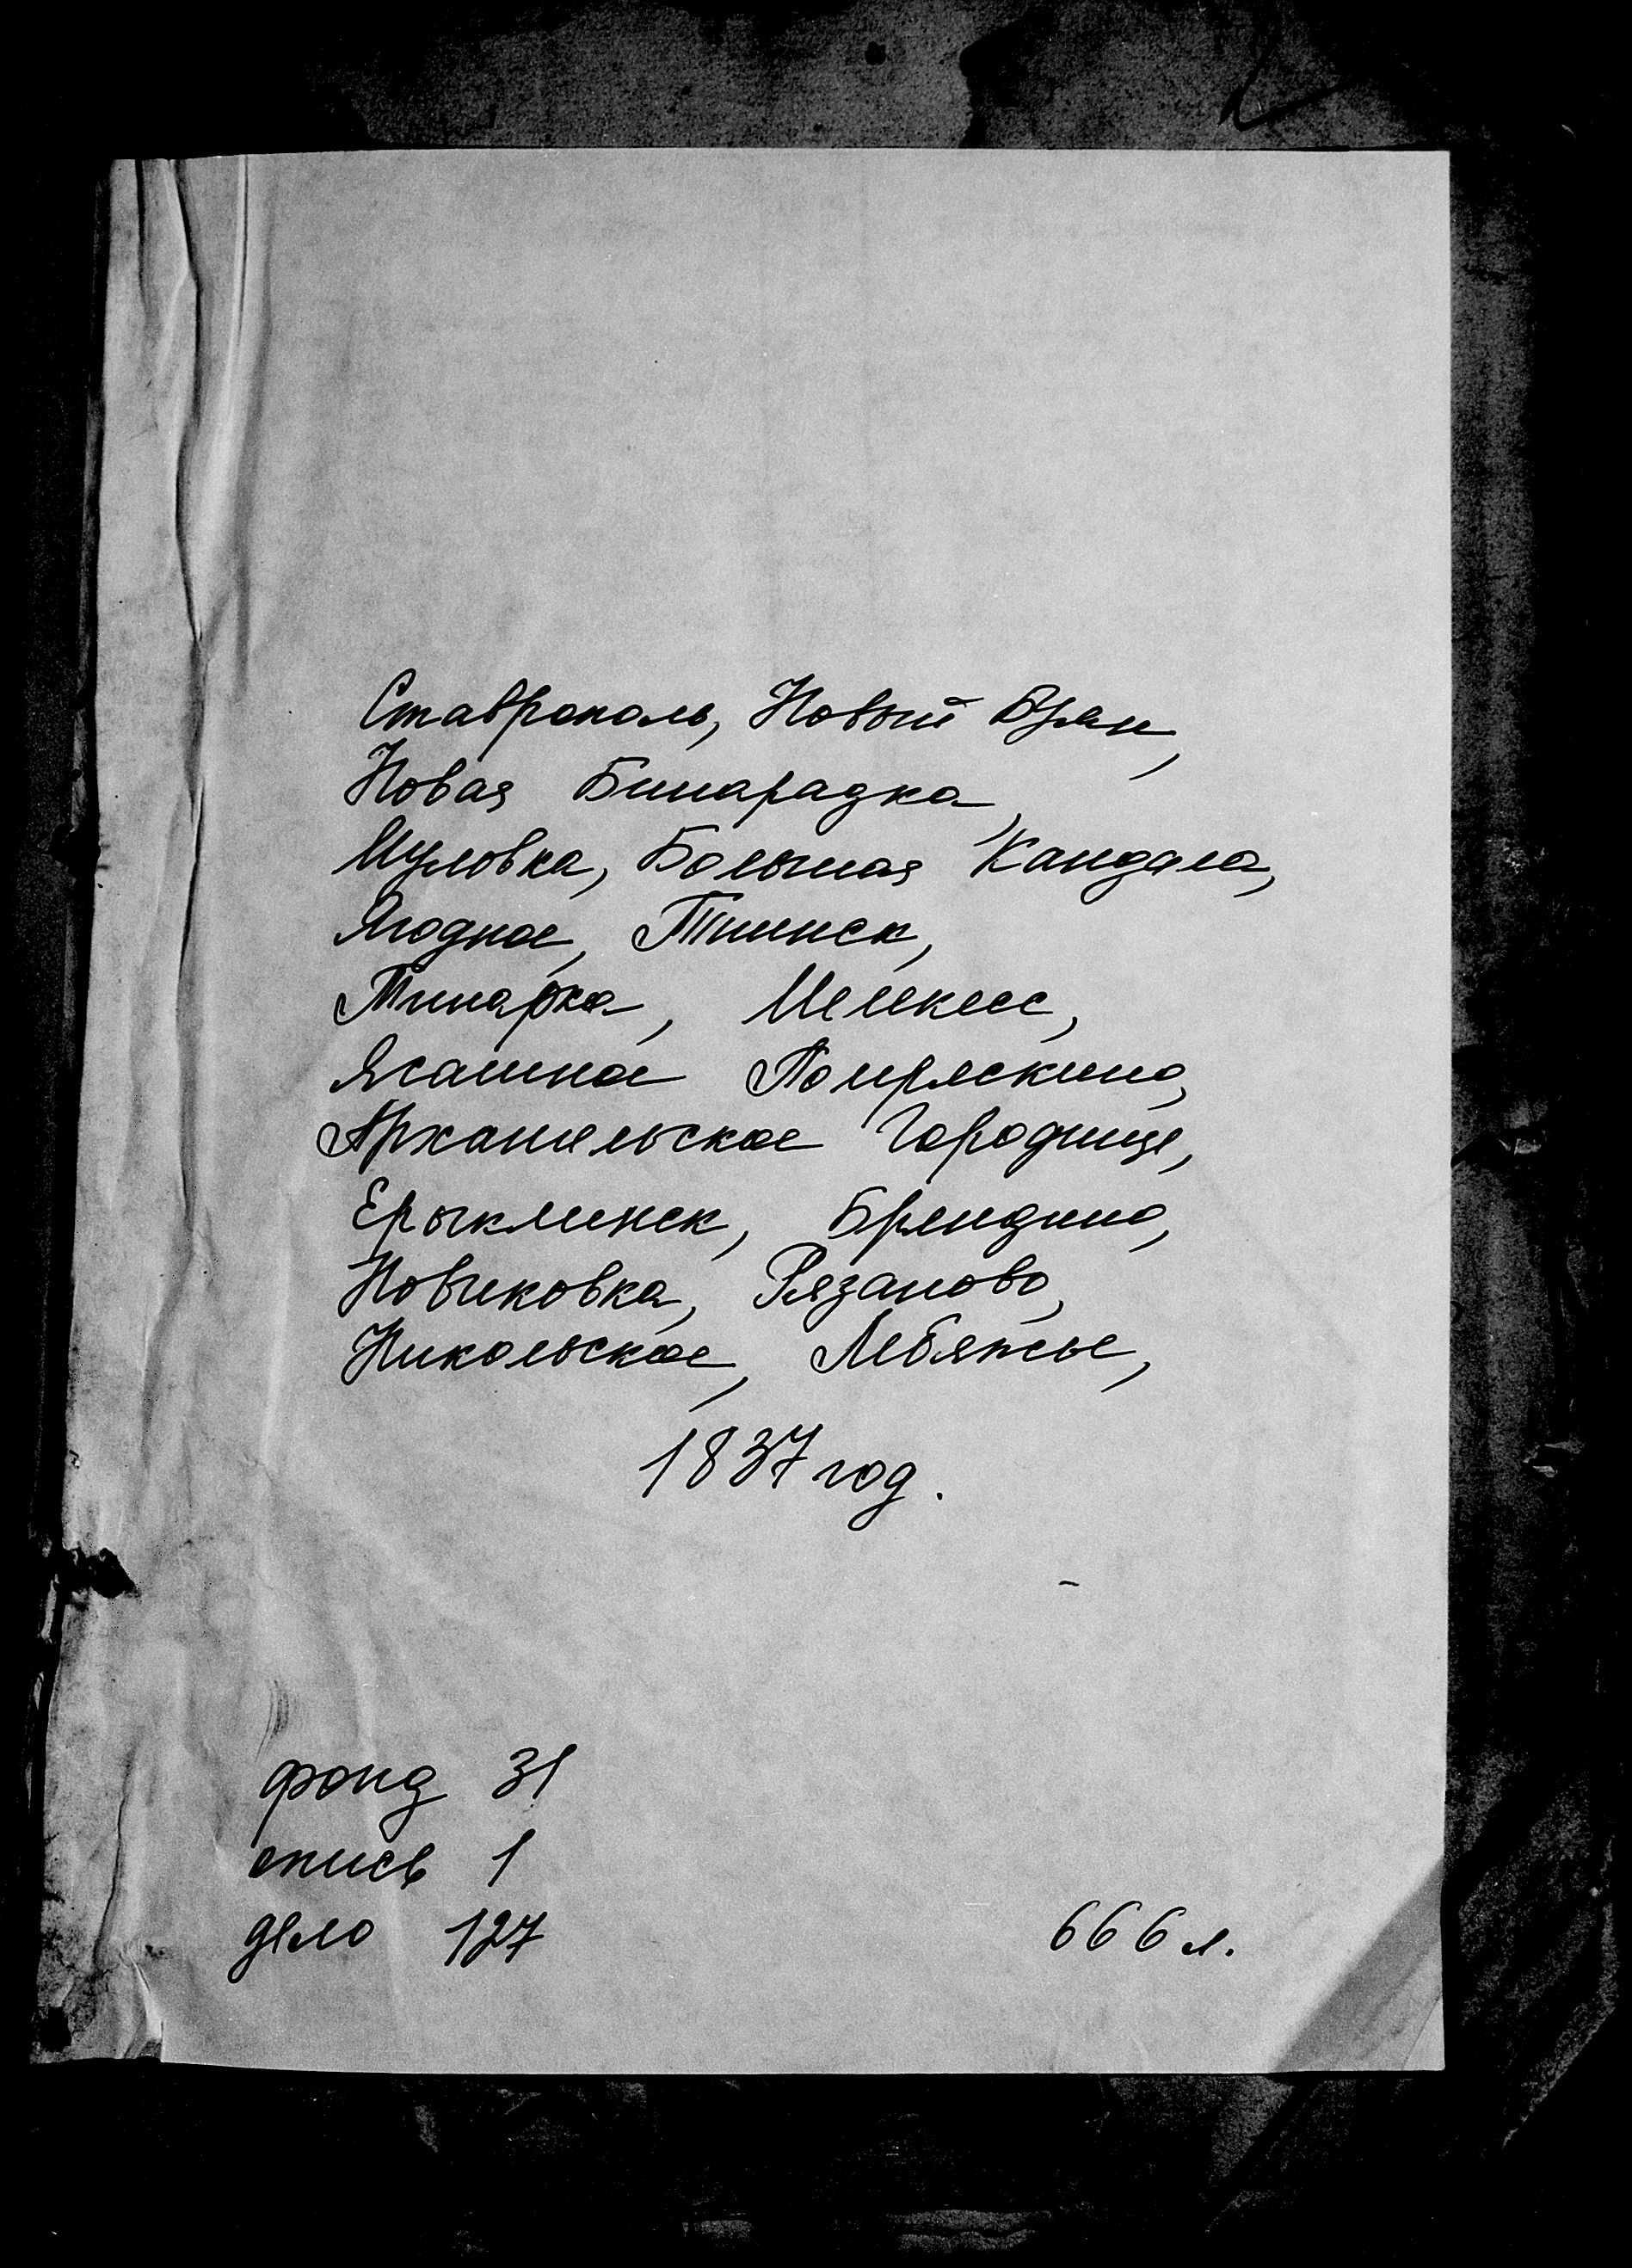 Ставрополь, Новый Буян,
Новая Бинарадка,
Муловка, Большая Кандала,
Ягодное, Тиинск,
Тинарка, Мелекесс,
Ясашное Помряскино,
Архангельское Городище,
Ерыклинск, Бряндино,
Новиковка, Рязаново,
Никольское, Лебяжье,
1837 год.
фонд 31
опись 1
дело 127
666 л.